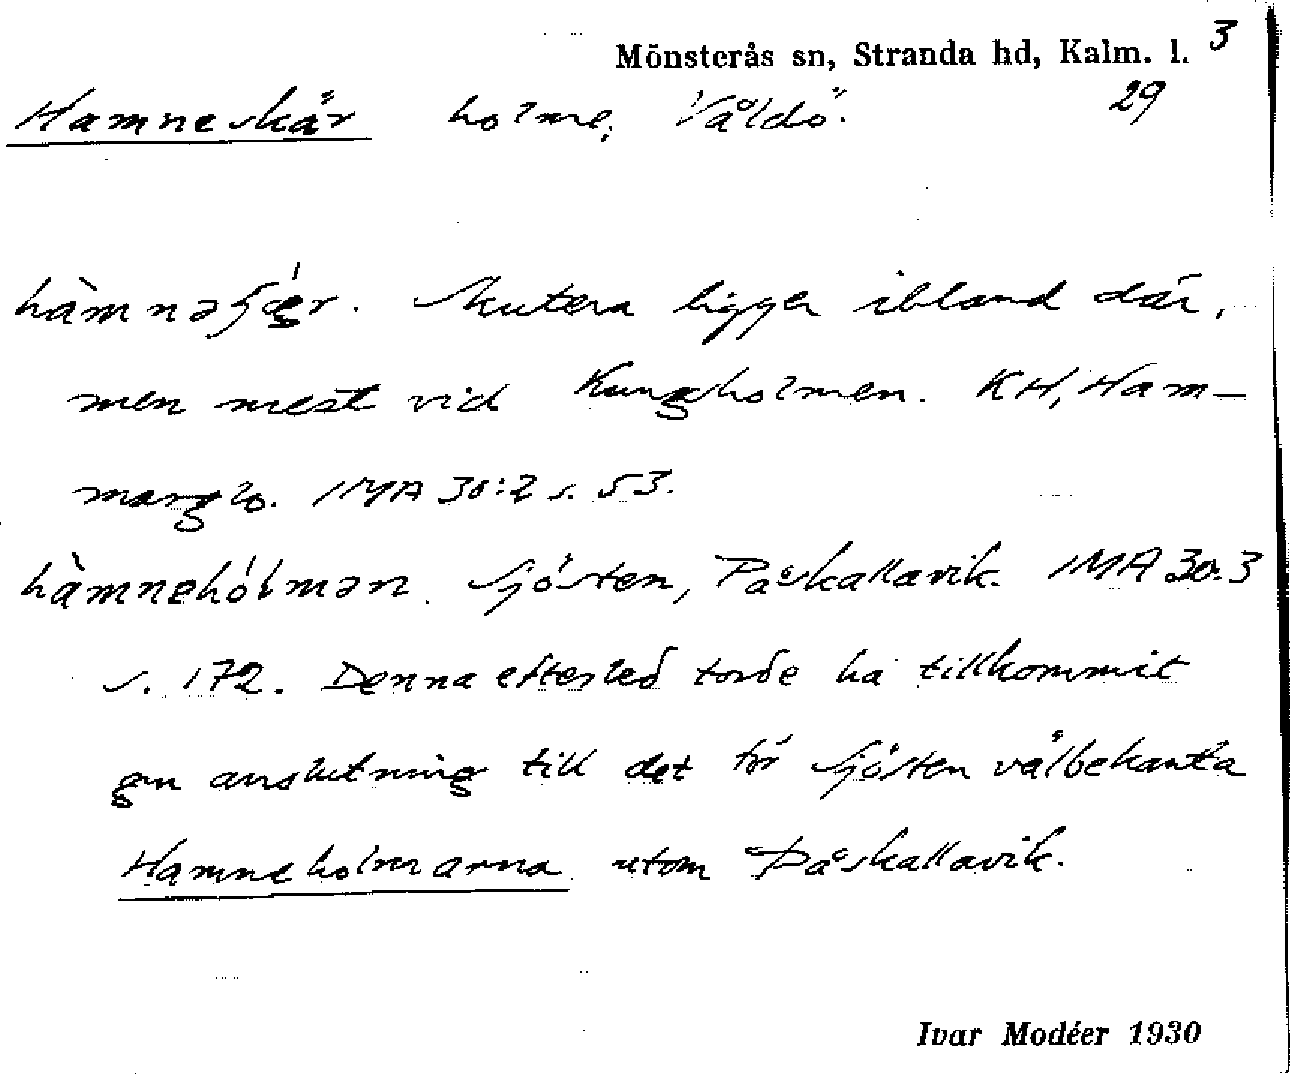 Mönsterås sn, Stranda hd, Kalm. l. 3
Hamneskär holme, Våldö. 29
hàmnəʃǽr. Skutera ligger ibland där,
men mest vid Kungsholmen. KH, Ham-
marglo. IMA 30:2 s. 53.
hàmnehólmən. Sjösten, Påskallavik. IMA 30:3
s. 172. Denna efterled torde ha tillkommit
gm anslutning till det för Sjösten välbekanta
Hamneholmarna utom Påskallavik.
Ivar Modéer 1930